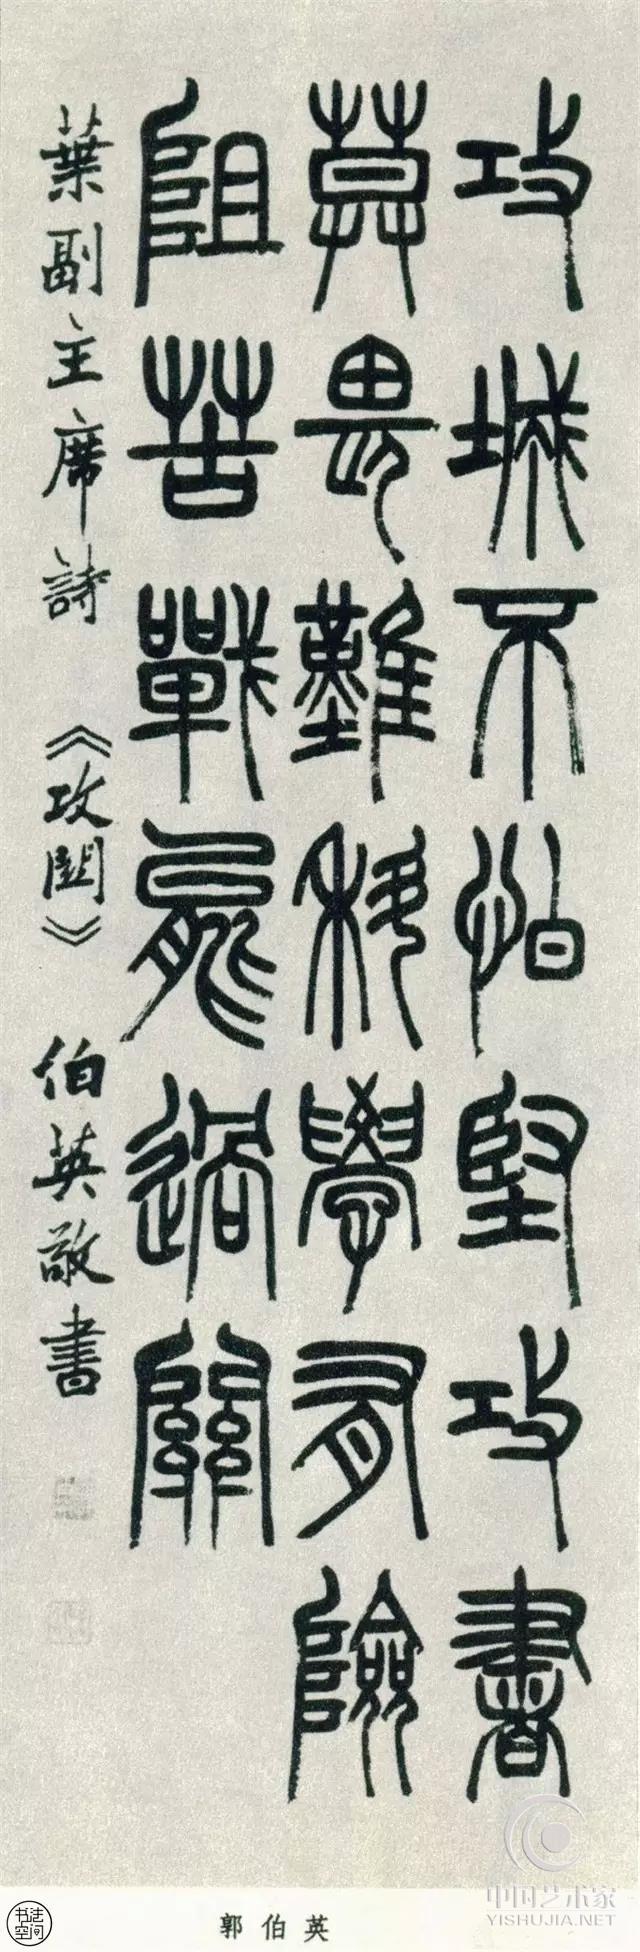 攻城不怕堅攻書
莫畏難科學有險
阻苦戰能過關
葉副主席詩《攻関》伯英敬書
郭伯英
书法空间
中国艺术家
YISHUJIA.NET